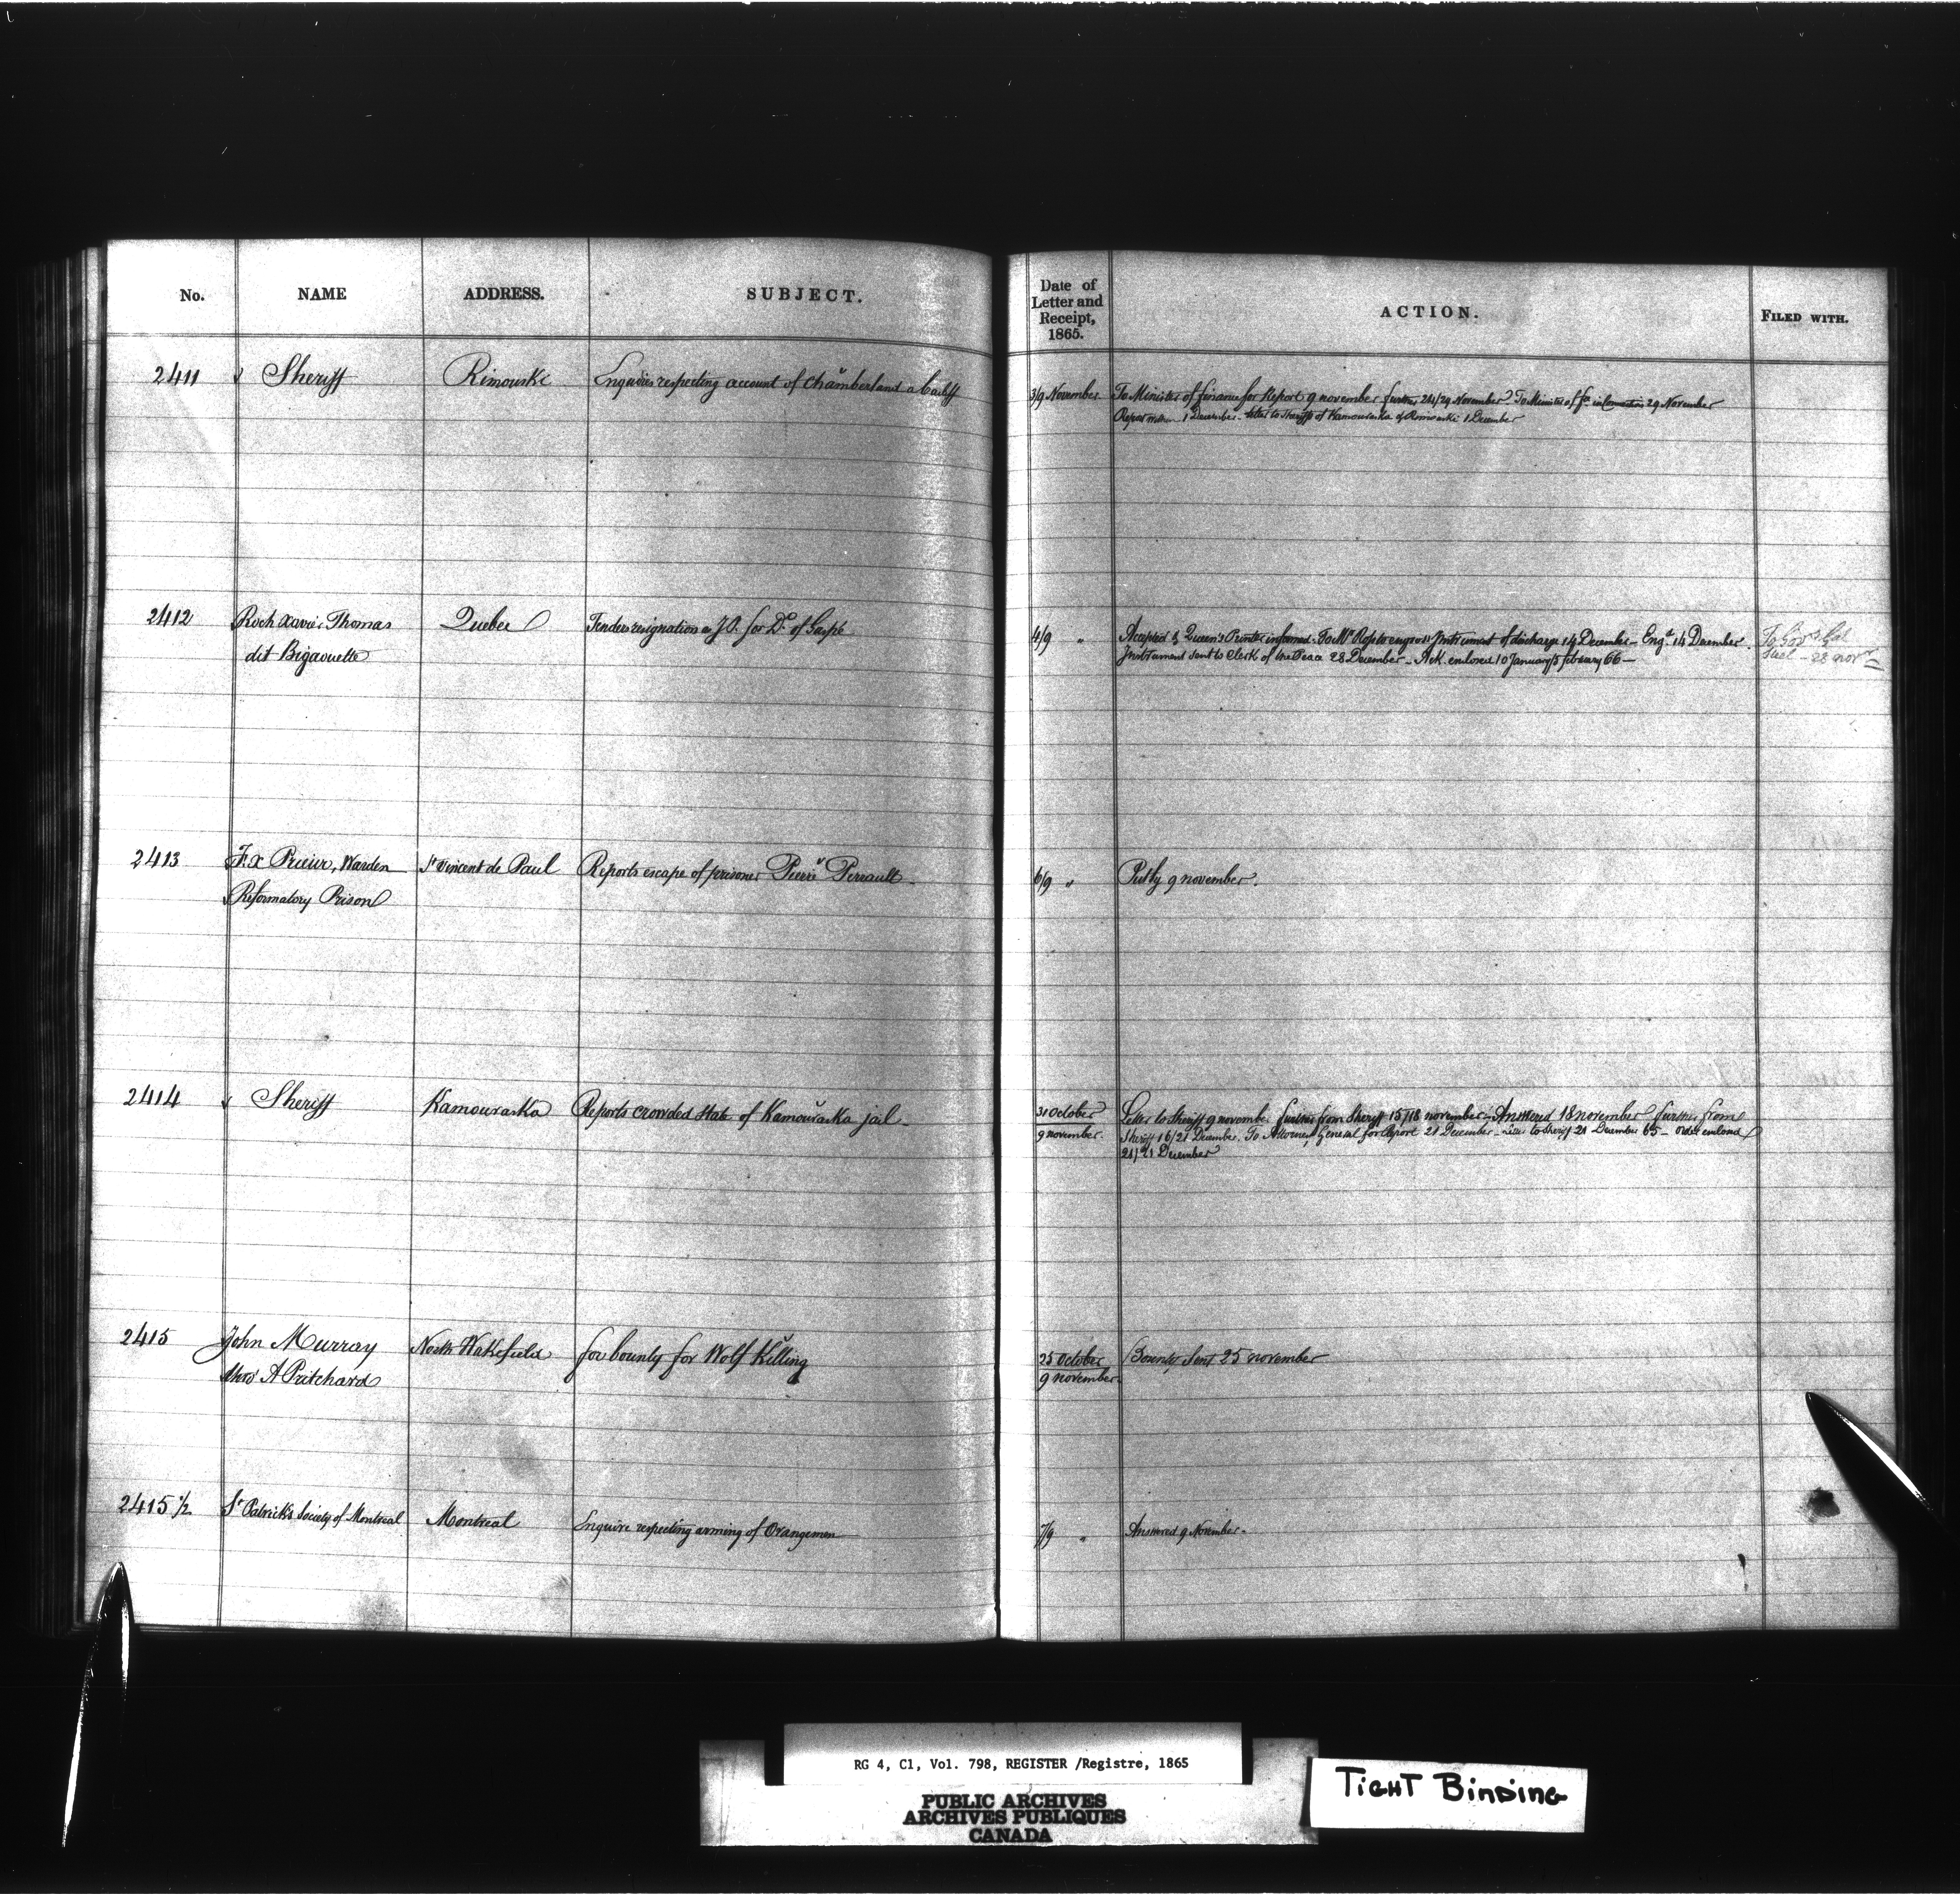 No. NAME ADDRESS. SUBJECT. Date of Letter and Receipt, 1865. ACTION. FILED WITH.
2411 Sheriff Rimouski Enquiries respecting account of Chamberland a bailiff 3/9 November To Minister of finance for Report 9 november further 24/29 November To Minister of fce 29 November
1 December - letter to Sheriffs of Kamouraska & Rimouski 1 December
2412 Roch Xavier Thomas Quebec Tenders resignation as J.P. for Dt. of Gaspé 4/9 " Accepted & Queen's Printer informed - To Mr Rope to engross Instrument of discharge 14 December - Engd. 14 December.
dit Bigaouette Instrument sent to Clerk of the Peace 28 December - Ack. enclosed 10 January/3 february 66 -
28 novr
2413 F. X Prieur, Warden St Vincent de Paul Reports escape of prisoner Pierre Perrault - 6/9 " Put by 9 november.
Reformatory Prison
2414 Sheriff Kamouraska Reports crowded state of Kamouraska jail - 31 October Letter to Sheriff 9 november. further from Sheriff 15/18 november - Answered 18 november further from
9 november. Sheriff 16/21 December. To Attorney General for Report 21 December - letter to Sheriff 21 December 65 - order enclosed
21/21 December
2415 John Murray North Wakefield for bounty for Wolf Killing 25 October Bounty Sent 25 november
thro' A Pritchard 9 november.
2415 1/2 St Patrick's Society of Montreal Montreal Enquire respecting arming of Orangemen 7/9 " Answered 9 November -
RG 4, C1, Vol. 798, REGISTER /Registre, 1865
PUBLIC ARCHIVES
ARCHIVES PUBLIQUES
CANADA
TIGHT BINDING